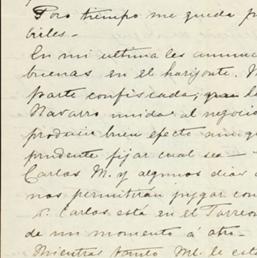 Poco tiempo me queda p
biles.-
En mi ultima les anunci
buenas en el horizonte. M
parte confiscada; que la
Navarro unida al negocio
producir buen efecto aunqu
prudente fijar cual sea -
Carlos M. y algunos dias d
nos permitirán juzgar con
D. Carlos está en el Torreon
de un momento á otro -
Mientras tanto Ml. le est